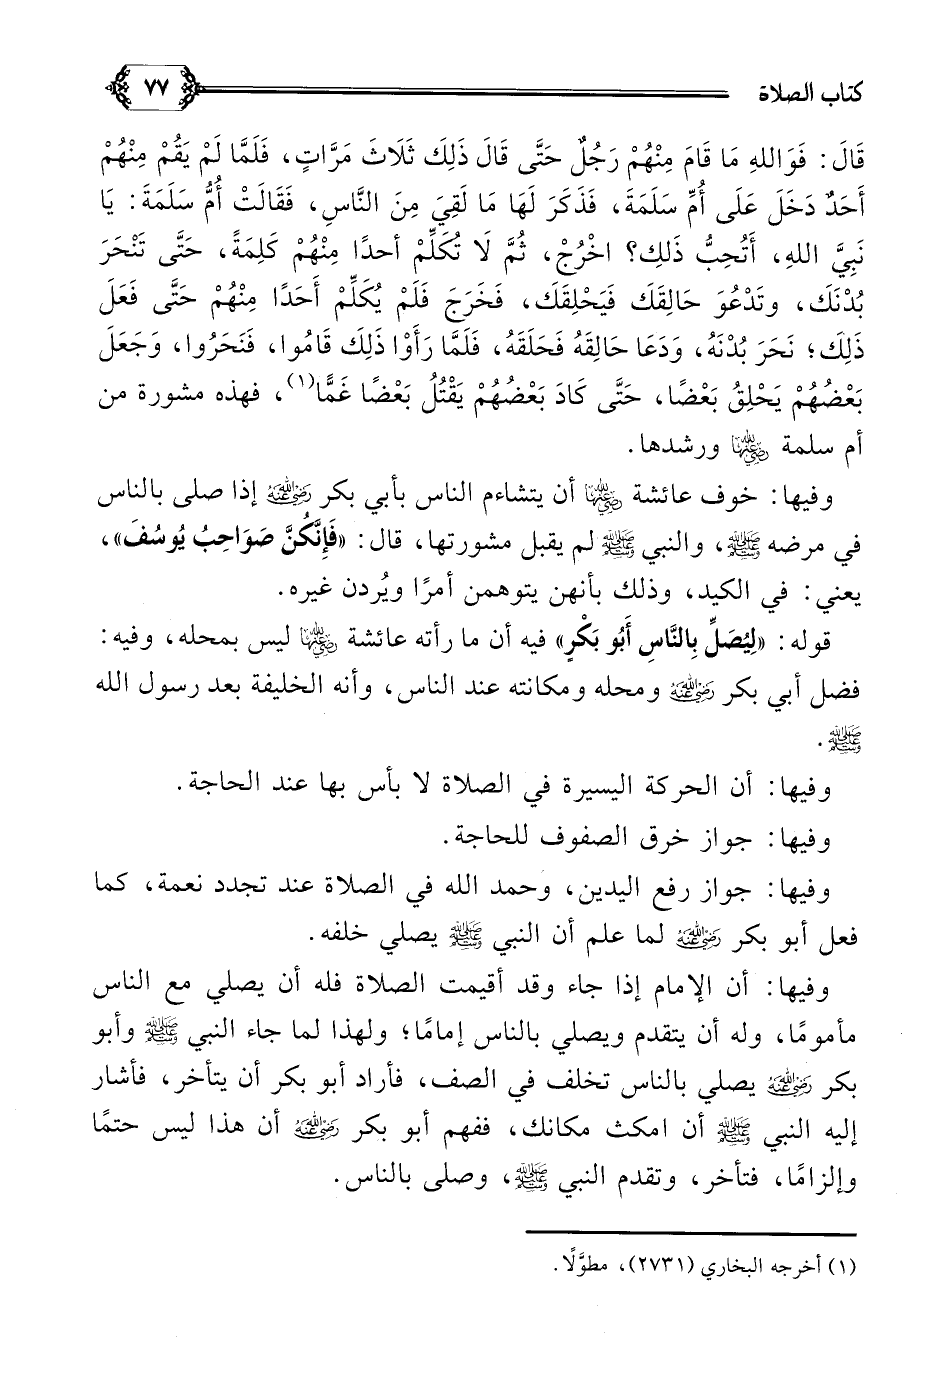 كتاب الصلاة ٧٧
قَالَ: فَوَاللهِ مَا قَامَ مِنْهُمْ رَجُلٌ حَتَّى قَالَ ذَلِكَ ثَلَاثَ مَرَّاتٍ، فَلَمَّا لَمْ يَقُمْ مِنْهُمْ
أَحَدٌ دَخَلَ عَلَى أُمِّ سَلَمَةَ، فَذَكَرَ لَهَا مَا لَقِيَ مِنَ النَّاسِ، فَقَالَتْ أُمُّ سَلَمَةَ: يَا
نَبِيَّ اللهِ، أَتُحِبُّ ذَلِكَ؟ اخْرُجْ، ثُمَّ لَا تُكَلِّمْ أحدًا مِنْهُمْ كَلِمَةً، حَتَّى تَنْحَرَ
بُدْنَكَ، وتَدْعُوَ حَالِقَكَ فَيَحْلِقَكَ، فَخَرَجَ فَلَمْ يُكَلِّمْ أَحَدًا مِنْهُمْ حَتَّى فَعَلَ
ذَلِكَ؛ نَحَرَ بُدْنَهُ، وَدَعَا حَالِقَهُ فَحَلَقَهُ، فَلَمَّا رَأَوْا ذَلِكَ قَامُوا، فَنَحَرُوا، وَجَعَلَ
بَعْضُهُمْ يَحْلِقُ بَعْضًا، حَتَّى كَادَ بَعْضُهُمْ يَقْتُلُ بَعْضًا غَمًّا(١)، فهذه مشورة من
أم سلمة رضي الله عنها ورشدها.
وفيها: خوف عائشة رضي الله عنها أن يتشاءم الناس بأبي بكر رضي الله عنه إذا صلى بالناس
في مرضه ﷺ، والنبي ﷺ لم يقبل مشورتها، قال: «فَإِنَّكُنَّ صَوَاحِبُ يُوسُفَ»،
يعني: في الكيد، وذلك بأنهن يتوهمن أمرًا ويُردن غيره.
قوله: «لِيُصَلِّ بِالنَّاسِ أَبُو بَكْرٍ» فيه أن ما رأته عائشة رضي الله عنها ليس بمحله، وفيه:
فضل أبي بكر رضي الله عنه ومحله ومكانته عند الناس، وأنه الخليفة بعد رسول الله
ﷺ.
وفيها: أن الحركة اليسيرة في الصلاة لا بأس بها عند الحاجة.
وفيها: جواز خرق الصفوف للحاجة.
وفيها: جواز رفع اليدين، وحمد الله في الصلاة عند تجدد نعمة، كما
فعل أبو بكر رضي الله عنه لما علم أن النبي ﷺ يصلي خلفه.
وفيها: أن الإمام إذا جاء وقد أقيمت الصلاة فله أن يصلي مع الناس
مأمومًا، وله أن يتقدم ويصلي بالناس إمامًا؛ ولهذا لما جاء النبي ﷺ وأبو
بكر رضي الله عنه يصلي بالناس تخلف في الصف، فأراد أبو بكر أن يتأخر، فأشار
إليه النبي ﷺ أن امكث مكانك، ففهم أبو بكر رضي الله عنه أن هذا ليس حتمًا
وإلزامًا، فتأخر، وتقدم النبي ﷺ، وصلى بالناس.
(١) أخرجه البخاري (٢٧٣١)، مطوَّلًا.